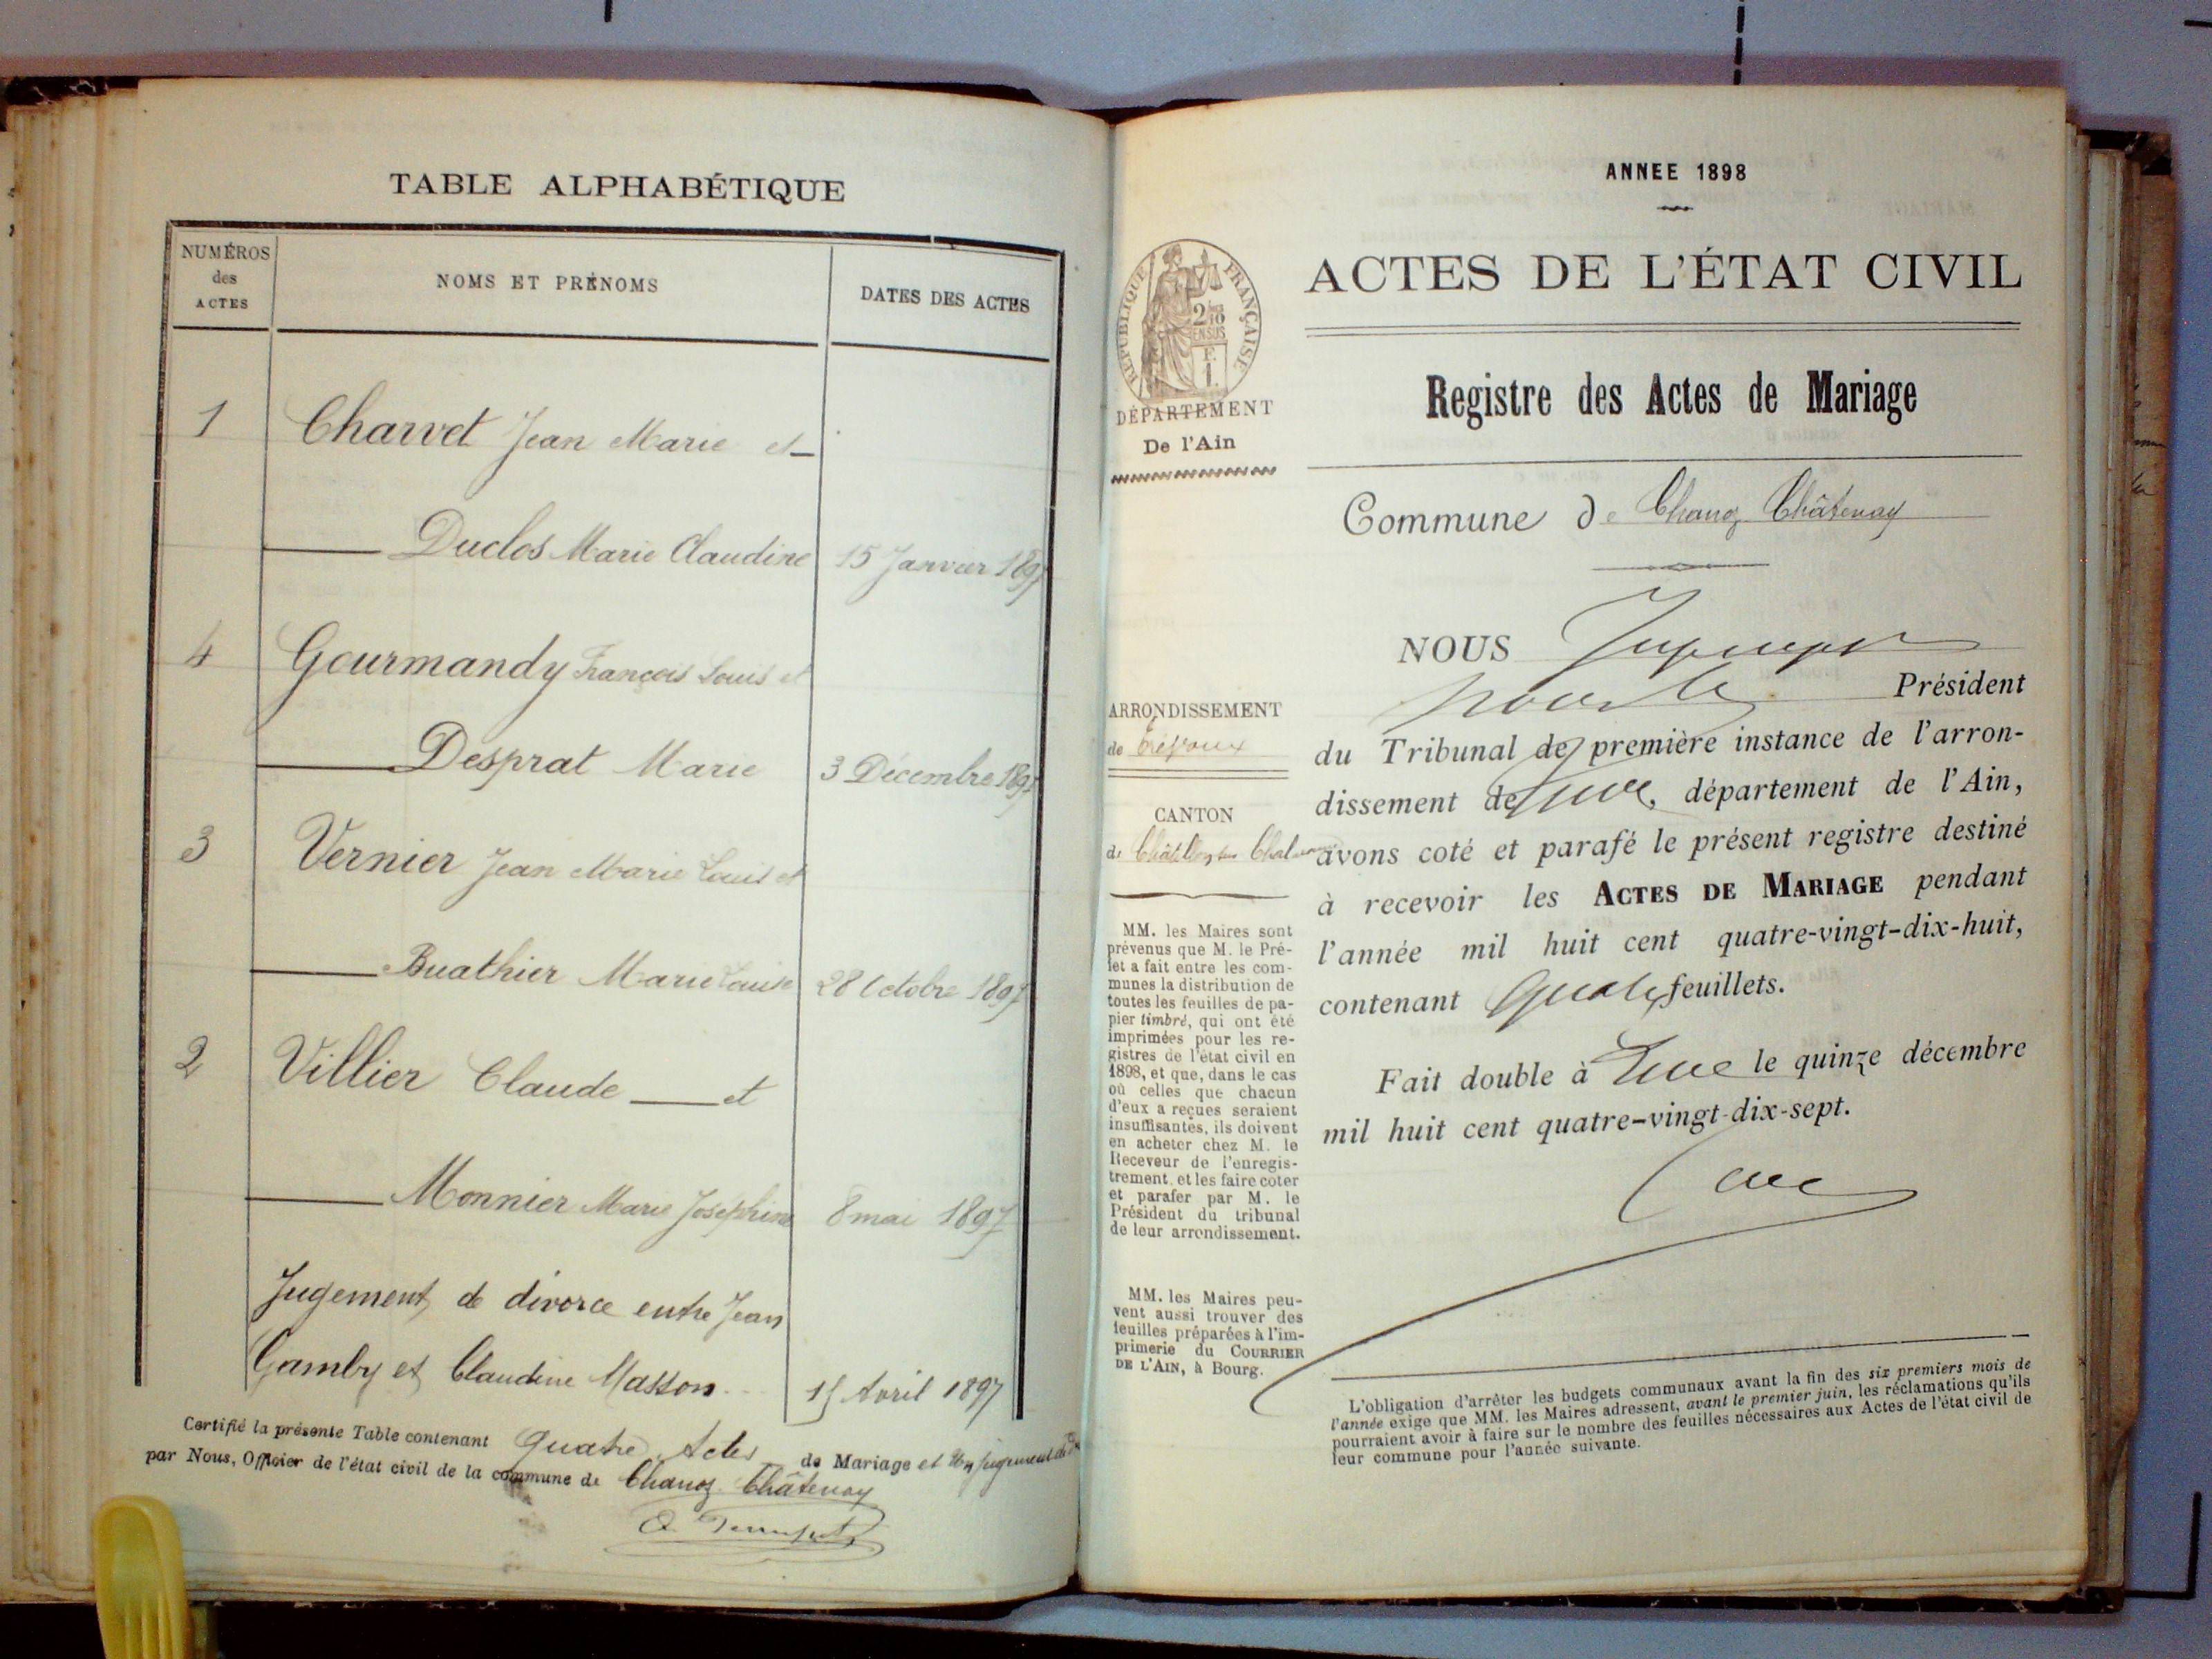 TABLE ALPHABÉTIQUE
NUMÉROS
des
ACTES
NOMS ET PRÉNOMS
DATES DES ACTES
1 Charvet Jean Marie et
Duclos Marie Claudine 15 Janvier 1897
4 Gourmandy François Louis et
Desprat Marie 3 Décembre 1897
3 Vernier Jean Marie Louis et
Buathier Marie Louise 28 Octobre 1897
2 Villier Claude et
Monnier Marie Joséphine 8 mai 1897
Jugement de divorce entre Jean
Gamby et Claudine Masson 15 Avril 1897
Certifié la présente Table contenant Quatre Actes de Mariage et Un jugement de
par Nous, Officier de l'état civil de la commune de Chanoz Châtenay
ANNEE 1898
RÉPUBLIQUE FRANÇAISE
ACTES DE L'ÉTAT CIVIL
DÉPARTEMENT
De l'Ain
Registre des Actes de Mariage
Commune de Chanoz Châtenay
ARRONDISSEMENT
de Trévoux
CANTON
de Châtillon sur Chalaronne
MM. les Maires sont
prévenus que M. le Pré-
fet a fait entre les com-
munes la distribution de
toutes les feuilles de pa-
pier timbré, qui ont été
imprimées pour les re-
gistres de l'état civil en
1898, et que, dans le cas
où celles que chacun
d'eux a reçues seraient
insuffisantes, ils doivent
en acheter chez M. le
Receveur de l'enregis-
trement et les faire coter
et parafer par M. le
Président du tribunal
de leur arrondissement.
MM. les Maires peu-
vent aussi trouver des
feuilles préparées à l'im-
primerie du COURRIER
DE L'AIN, à Bourg.
NOUS
Président
du Tribunal de première instance de l'arron-
dissement de département de l'Ain,
avons coté et parafé le présent registre destiné
à recevoir les ACTES DE MARIAGE pendant
l'année mil huit cent quatre-vingt-dix-huit,
contenant quatre feuillets.
Fait double à le quinze décembre
mil huit cent quatre-vingt-dix-sept.
L'obligation d'arrêter les budgets communaux avant la fin des six premiers mois de
l'année exige que MM. les Maires adressent, avant le premier juin, les réclamations qu'ils
pourraient avoir à faire sur le nombre des feuilles nécessaires aux Actes de l'état civil de
leur commune pour l'année suivante.